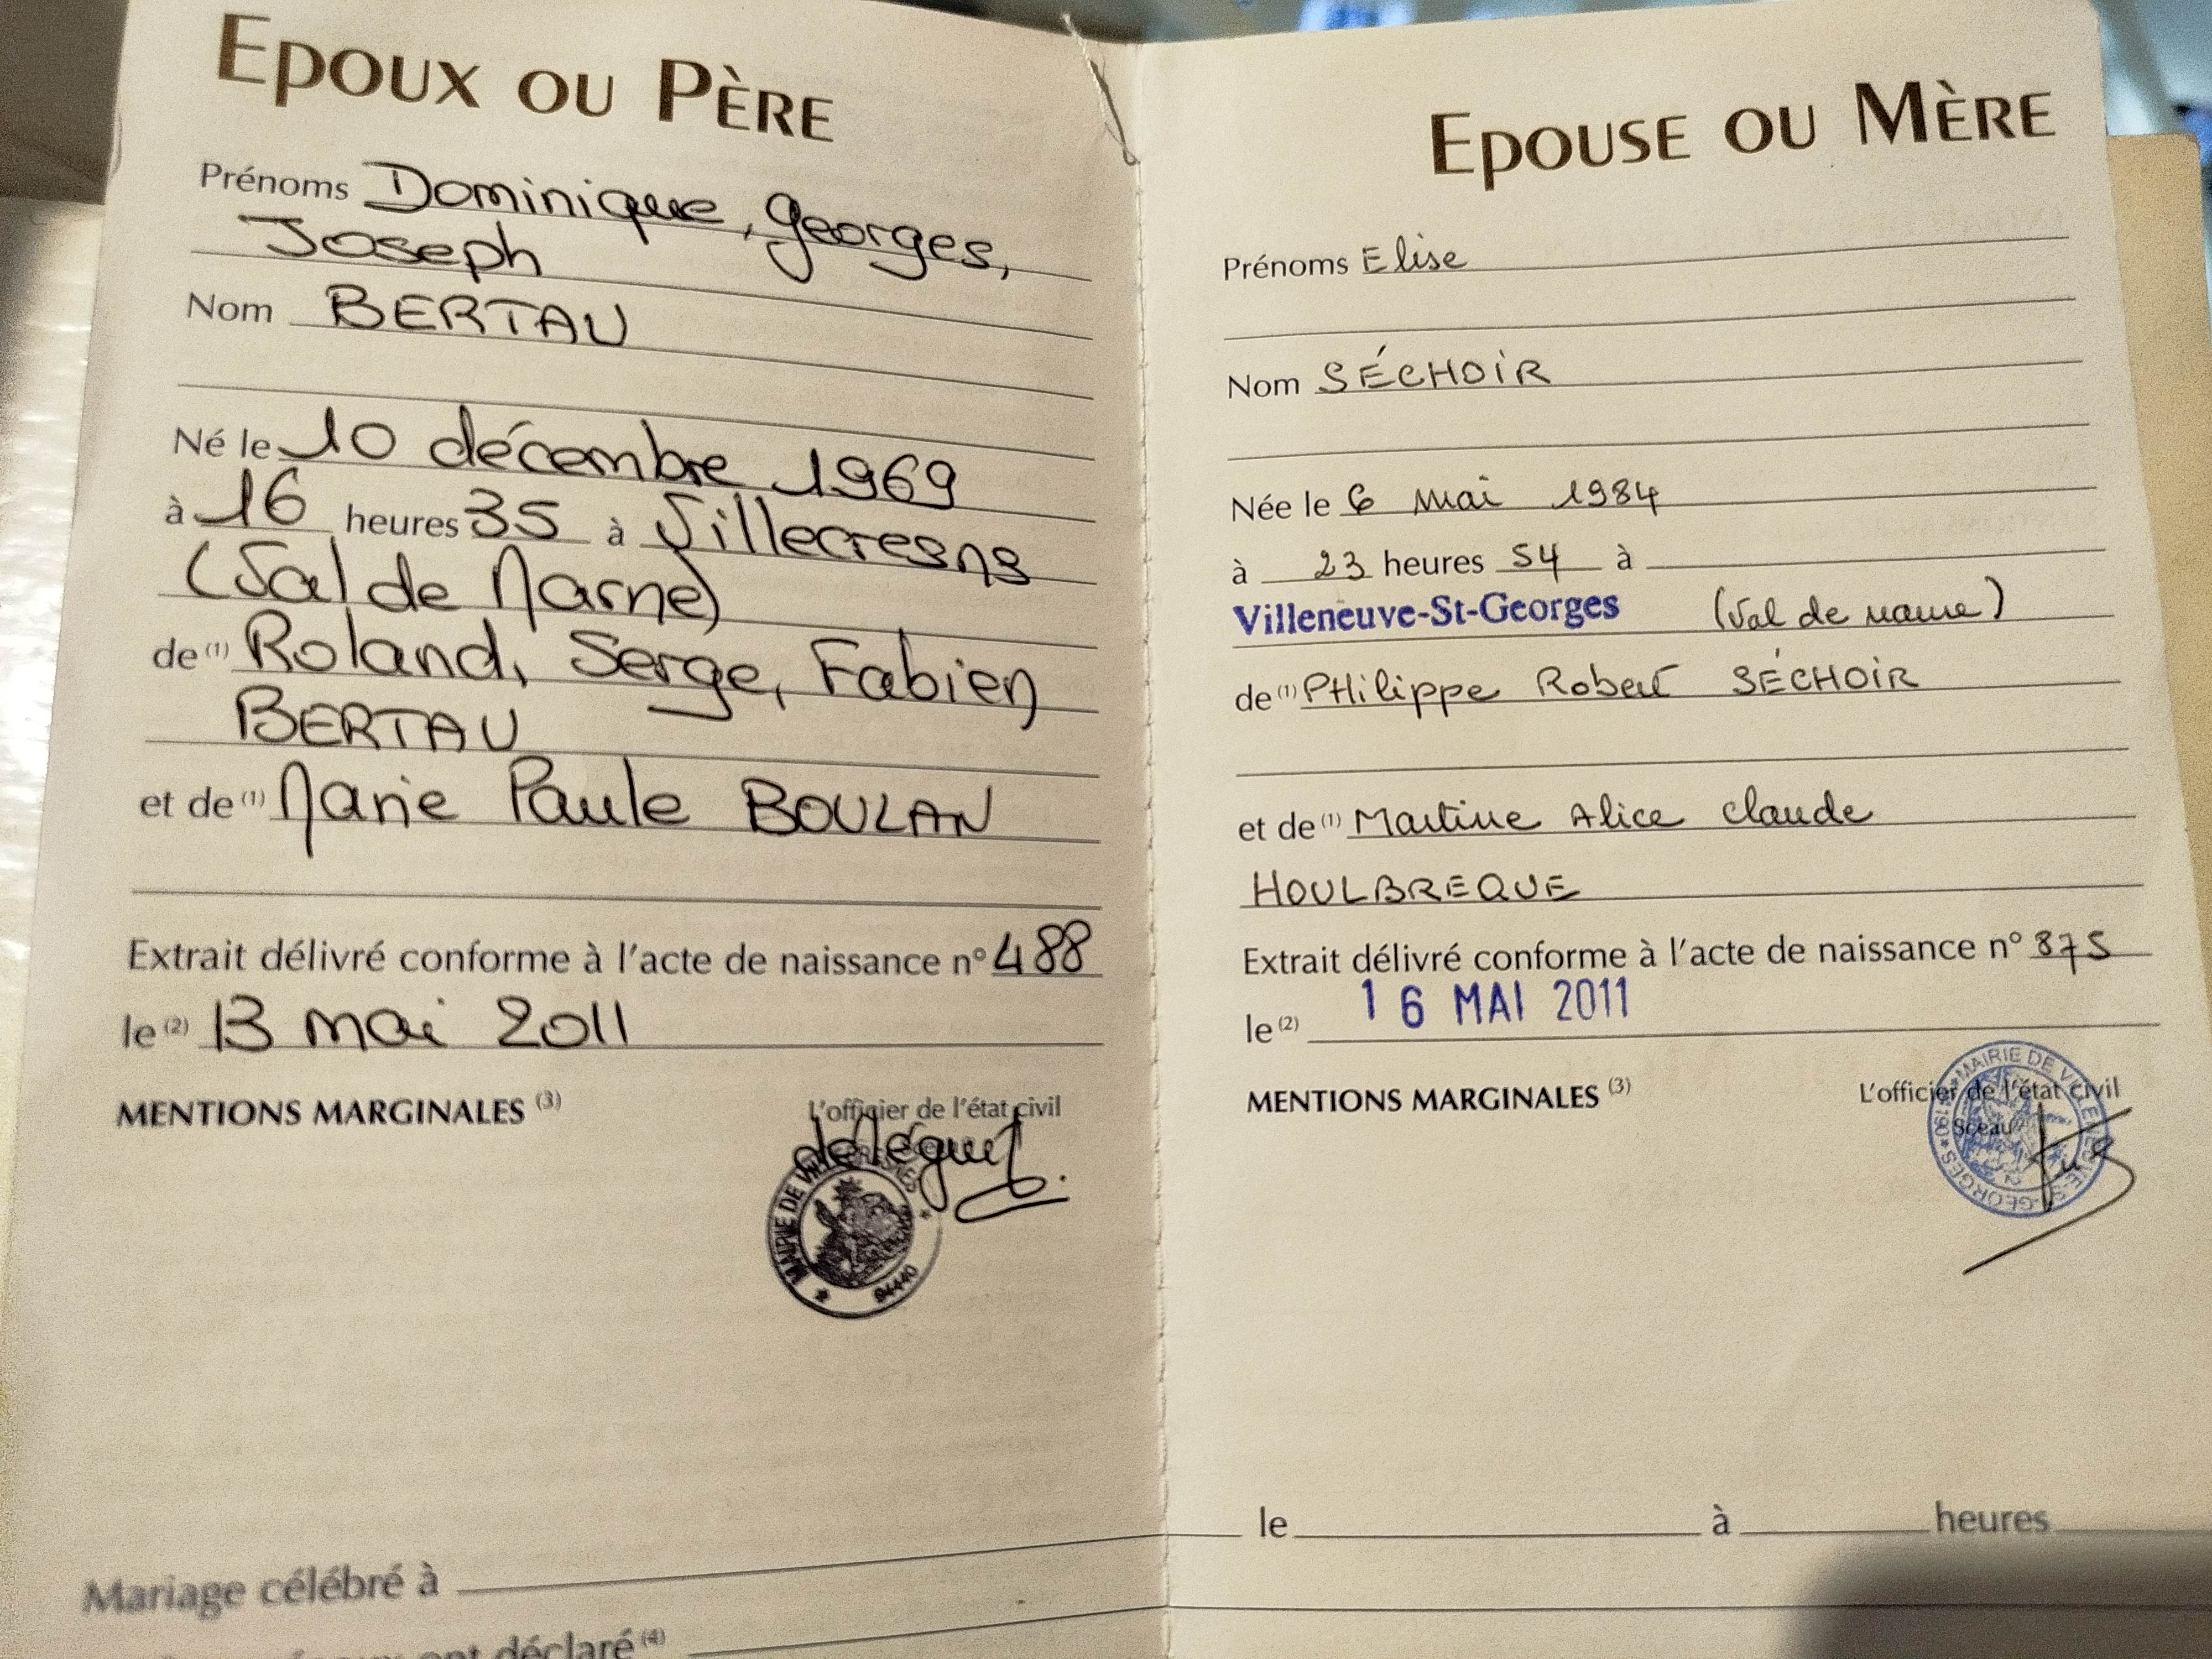 EPOUX OU PÈRE
Prénoms Dominique, Georges,
Joseph
Nom BERTAU
Né le 10 décembre 1969
à 16 heures 35 à Villecresnes
(Val de Marne)
de (1) Roland, Serge, Fabien
BERTAU
et de (1) Marie Paule BOULAN
Extrait délivré conforme à l'acte de naissance n° 488
le (2) 13 mai 2011
MENTIONS MARGINALES (3)
L'officier de l'état civil
MAIRIE DE
94440
Mariage célébré à
ont déclaré (4)
EPOUSE OU MÈRE
Prénoms Elise
Nom SÉCHOIR
Née le 6 mai 1984
à 23 heures 54 à
Villeneuve-St-Georges (Val de Marne)
de (1) PHilippe Robert SÉCHOIR
et de (1) Martine Alice Claude
HOULBREQUE
Extrait délivré conforme à l'acte de naissance n° 875
le (2) 16 MAI 2011
MENTIONS MARGINALES (3)
L'officier de l'état civil
Sceau
MAIRIE DE VILLENEUVE-ST-GEORGES
le à heures